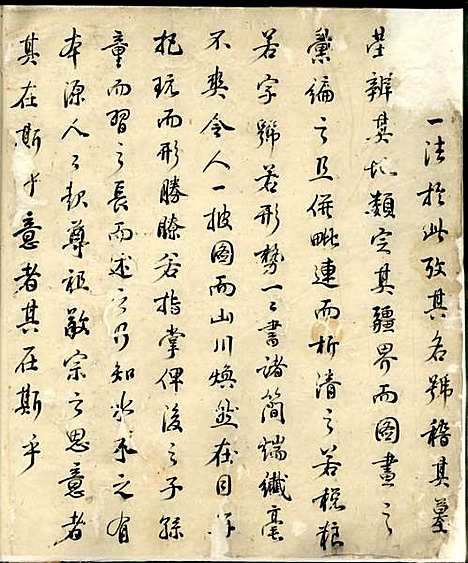 一法於此考其名號稽其墓
塋辨其坵類定其疆界而圖畫之
彙編之且併毗連而析清之若稅糧
若字號若形勢一々書諸簡端纖毫
不爽令人一披圖而山川煥然在目
把玩而形勝瞭若指掌俾後之子孫
童而習之長而述之乃知水木之有
本源人人敦尊祖敬宗之思意者
其在斯乎意者其在斯乎